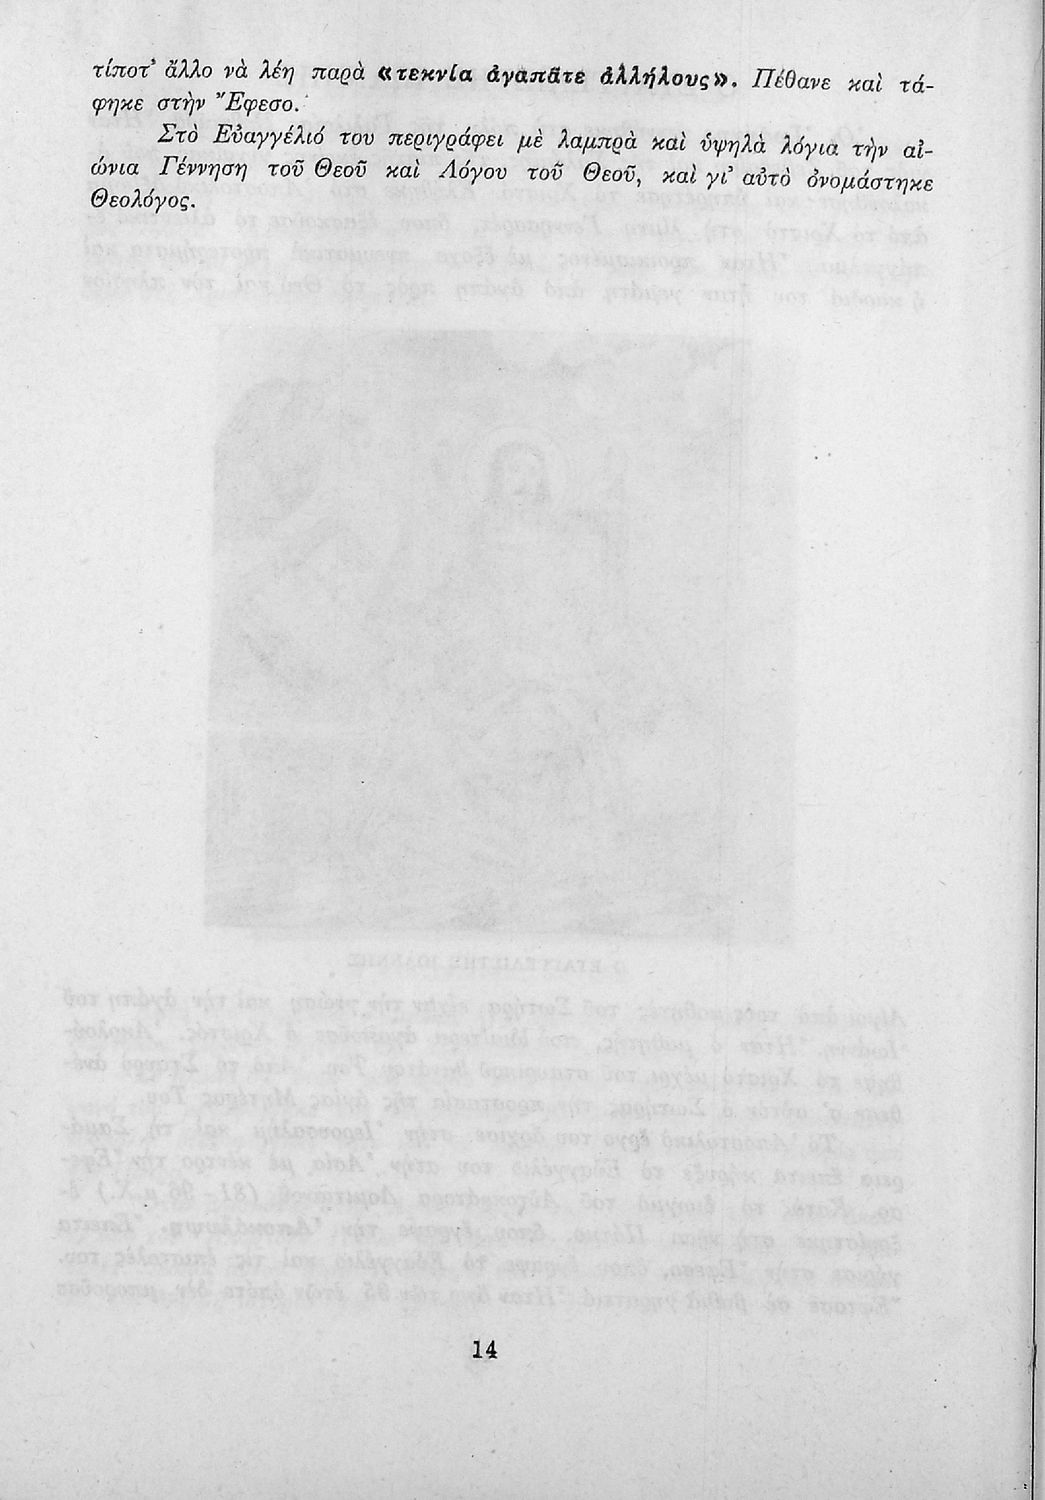 τίποτ’ ἄλλο νὰ λέη παρὰ «τεκνία ἀγαπᾶτε ἀλλήλους». Πέθανε καὶ τά-
φηκε στὴν Ἔφεσο.
Στὸ Εὐαγγέλιό του περιγράφει μὲ λαμπρὰ καὶ ὑψηλὰ λόγια τὴν αἰ-
ώνια Γέννηση τοῦ Θεοῦ καὶ Λόγου τοῦ Θεοῦ, καὶ γι’ αὐτὸ ὀνομάστηκε
Θεολόγος.
14